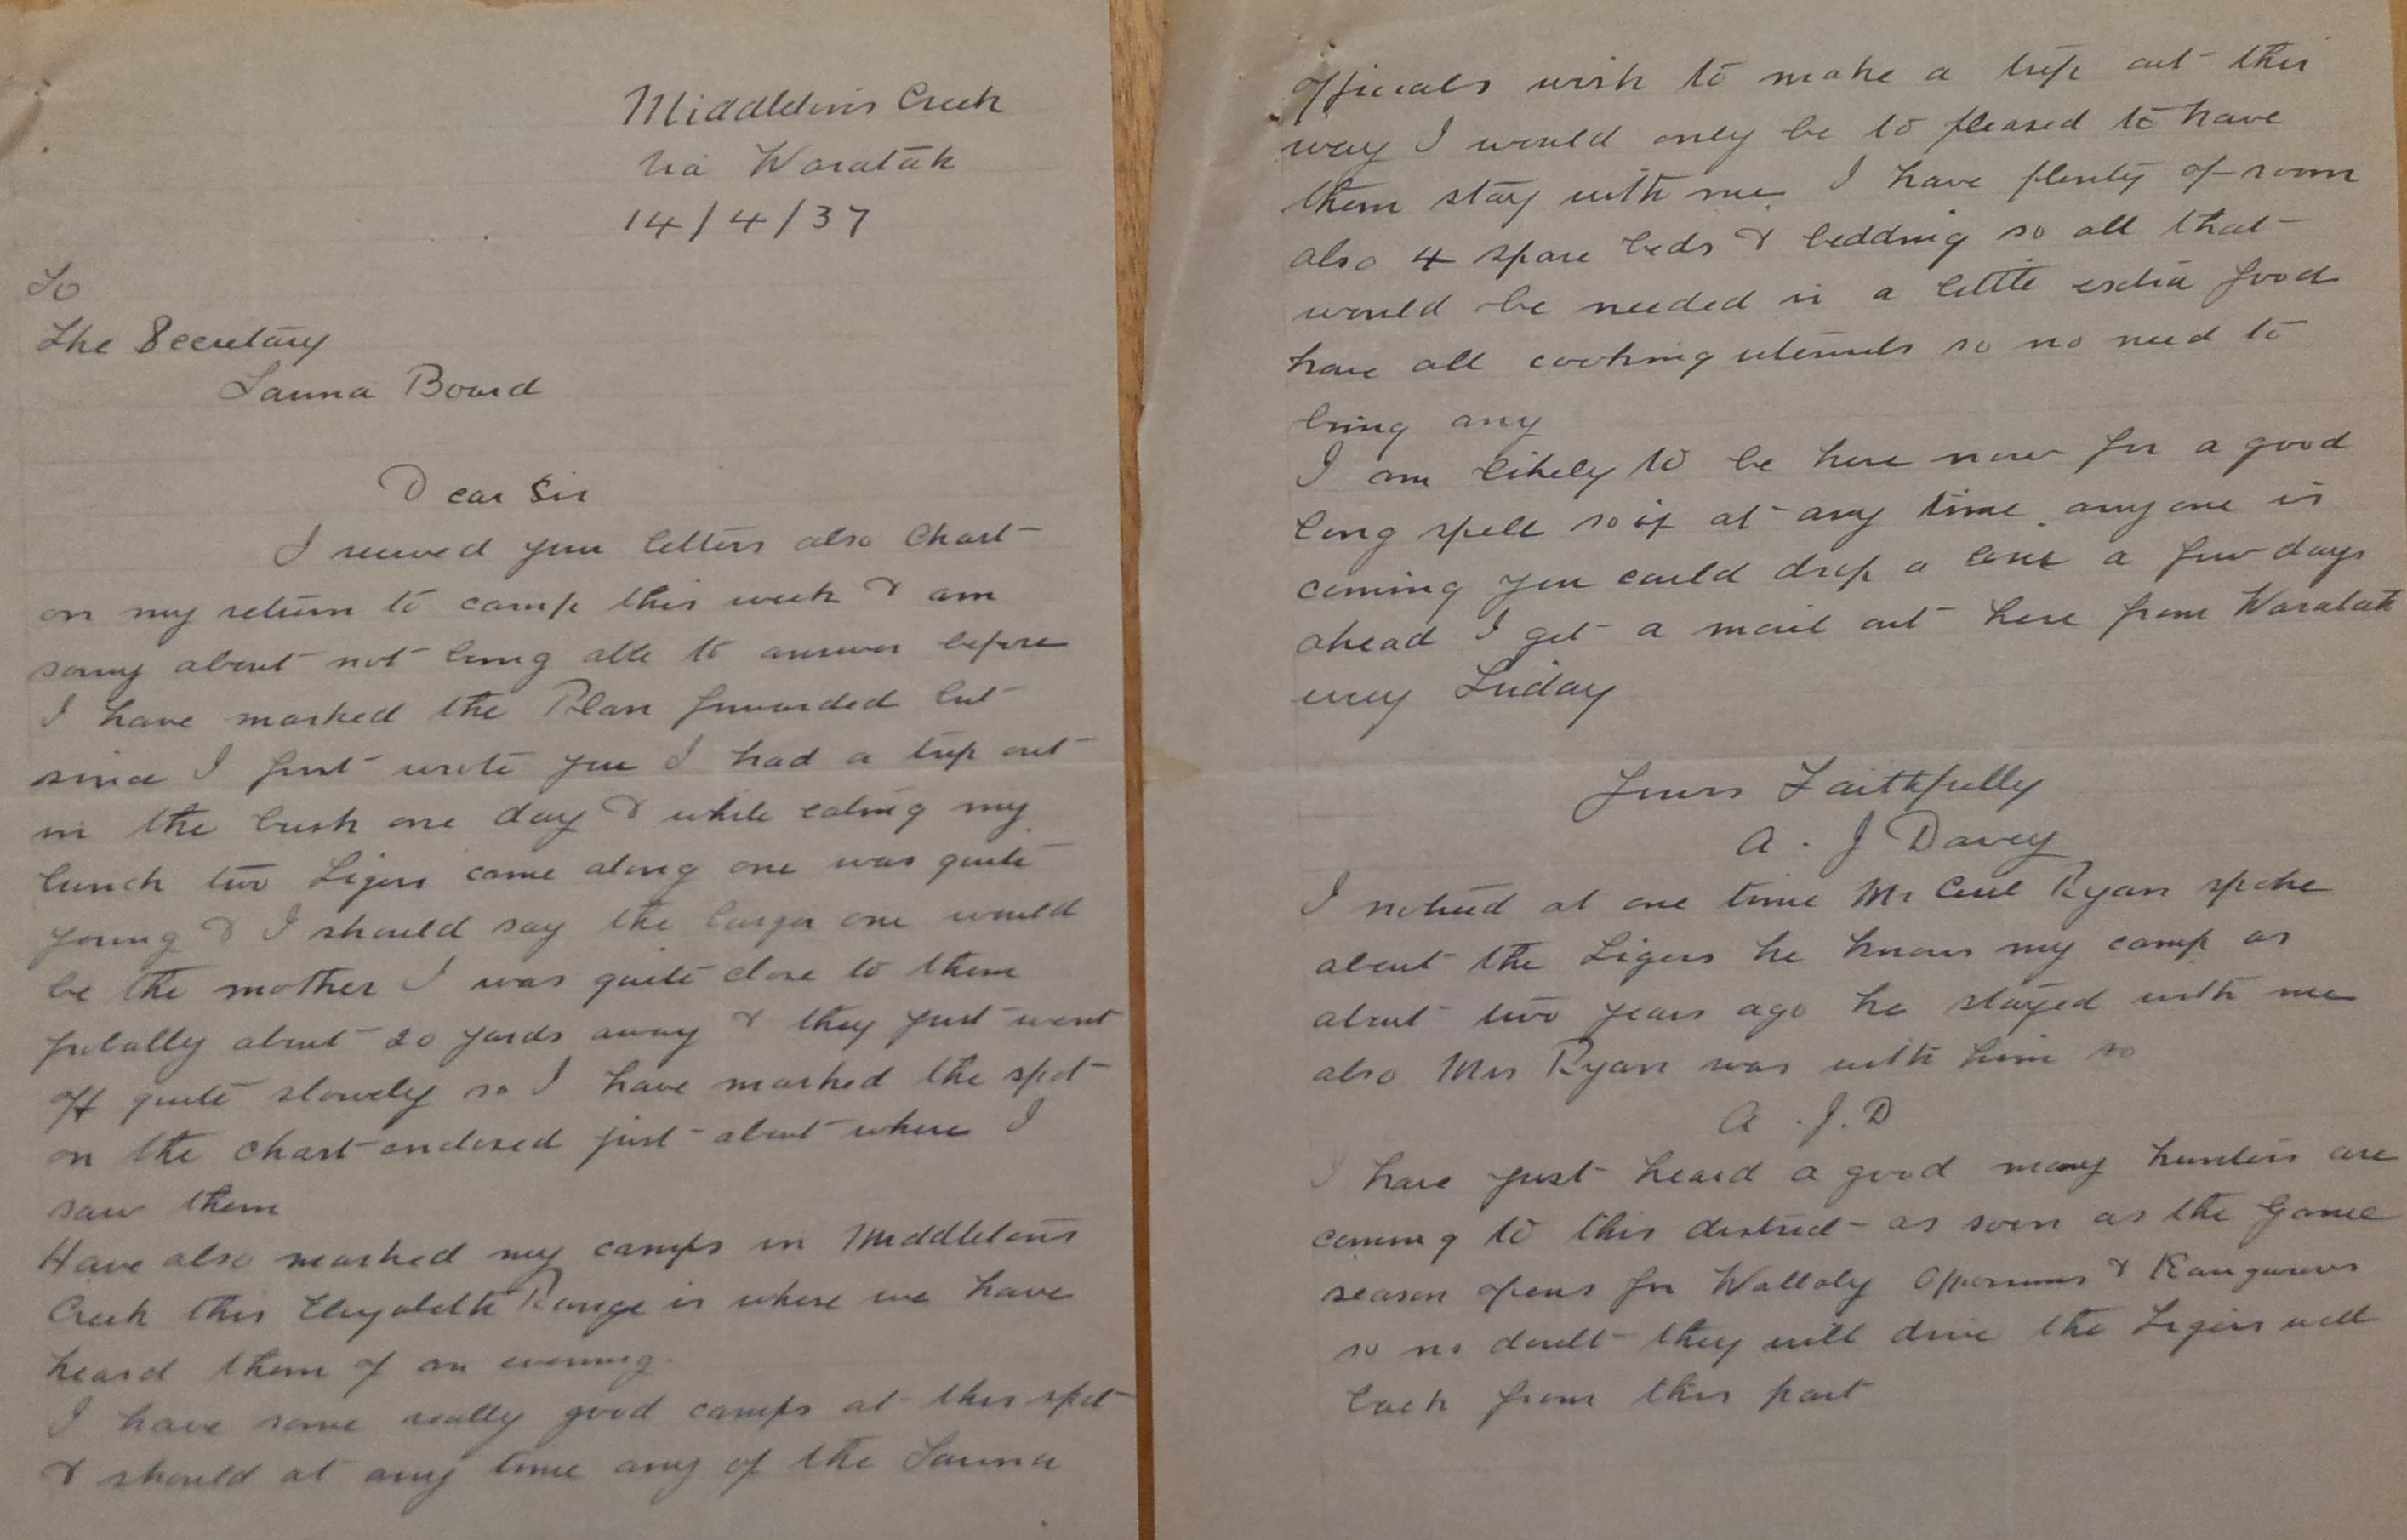 Middletons Creek
Via Waratah
14/4/37
To
The Secretary
Fauna Board
Dear Sir
I received your letters also Chart
on my return to camp this week & am
sorry about not being able to answer before
I have marked the Plan forwarded but
since I first wrote you I had a trip out
in the bush one day & while eating my
lunch two Tigers came along one was quite
young & I should say the larger one would
be the mother I was quite close to them
probally about 20 yards away & they just went
off quite slowely so I have marked the spot
on the chart enclosed just about where I
saw them
Have also marked my camps in Middletons
Creek this Elizabeth Range is where we have
heard them of an evening.
I have some really good camps at this spot
& should at any time any of the Fauna
officials wish to make a trip out this
way I would only be to pleased to have
them stay with me I have plenty of room
also 4 spare beds & bedding so all that
would be needed is a little extra food
have all cooking utensils so no need to
bring any
I am likely to be here now for a good
long spell so if at any time anyone is
coming you could drop a line a few days
ahead I get a mail out here from Waratah
every Friday
Yours Faithfully
A. J Davey
I noticed at one time Mr Cecil Ryan spoke
about the Tigers he knows my camp as
about two years ago he stayed with me
also Mrs Ryan was with him so
A. J. D
I have just heard a good many hunters are
coming to this district as soon as the Game
season opens for Wallaby Opposums & Kangaroos
so no doubt they will drive the Tigers well
back from this part